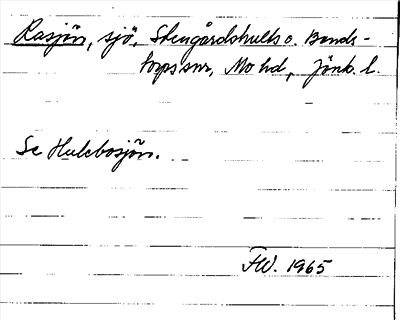 Rasjön, sjö, Stengårdshults o. Bonds-
torps snr, Mo hd, Jönk. l.
Se Hulebosjön.
FW. 1965